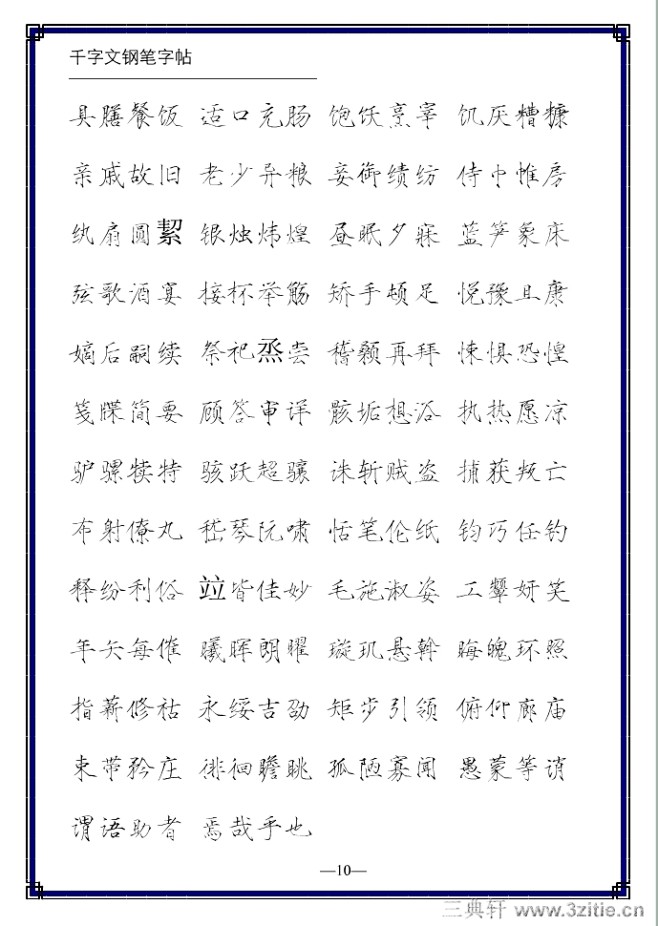 千字文钢笔字帖
具膳餐饭 适口充肠 饱饫烹宰 饥厌糟糠
亲戚故旧 老少异粮 妾御绩纺 侍巾帷房
纨扇圆絜 银烛炜煌 昼眠夕寐 蓝笋象床
弦歌酒宴 接杯举觞 矫手顿足 悦豫且康
嫡后嗣续 祭祀烝尝 稽颡再拜 悚惧恐惶
笺牒简要 顾答审详 骸垢想浴 执热愿凉
驴骡犊特 骇跃超骧 诛斩贼盗 捕获叛亡
布射僚丸 嵇琴阮啸 恬笔伦纸 钧巧任钓
释纷利俗 竝皆佳妙 毛施淑姿 工颦妍笑
年矢每催 曦晖朗曜 璇玑悬斡 晦魄环照
指薪修祜 永绥吉劭 矩步引领 俯仰廊庙
束带矜庄 徘徊瞻眺 孤陋寡闻 愚蒙等诮
谓语助者 焉哉乎也
—10—
三典轩 www.3zitie.cn